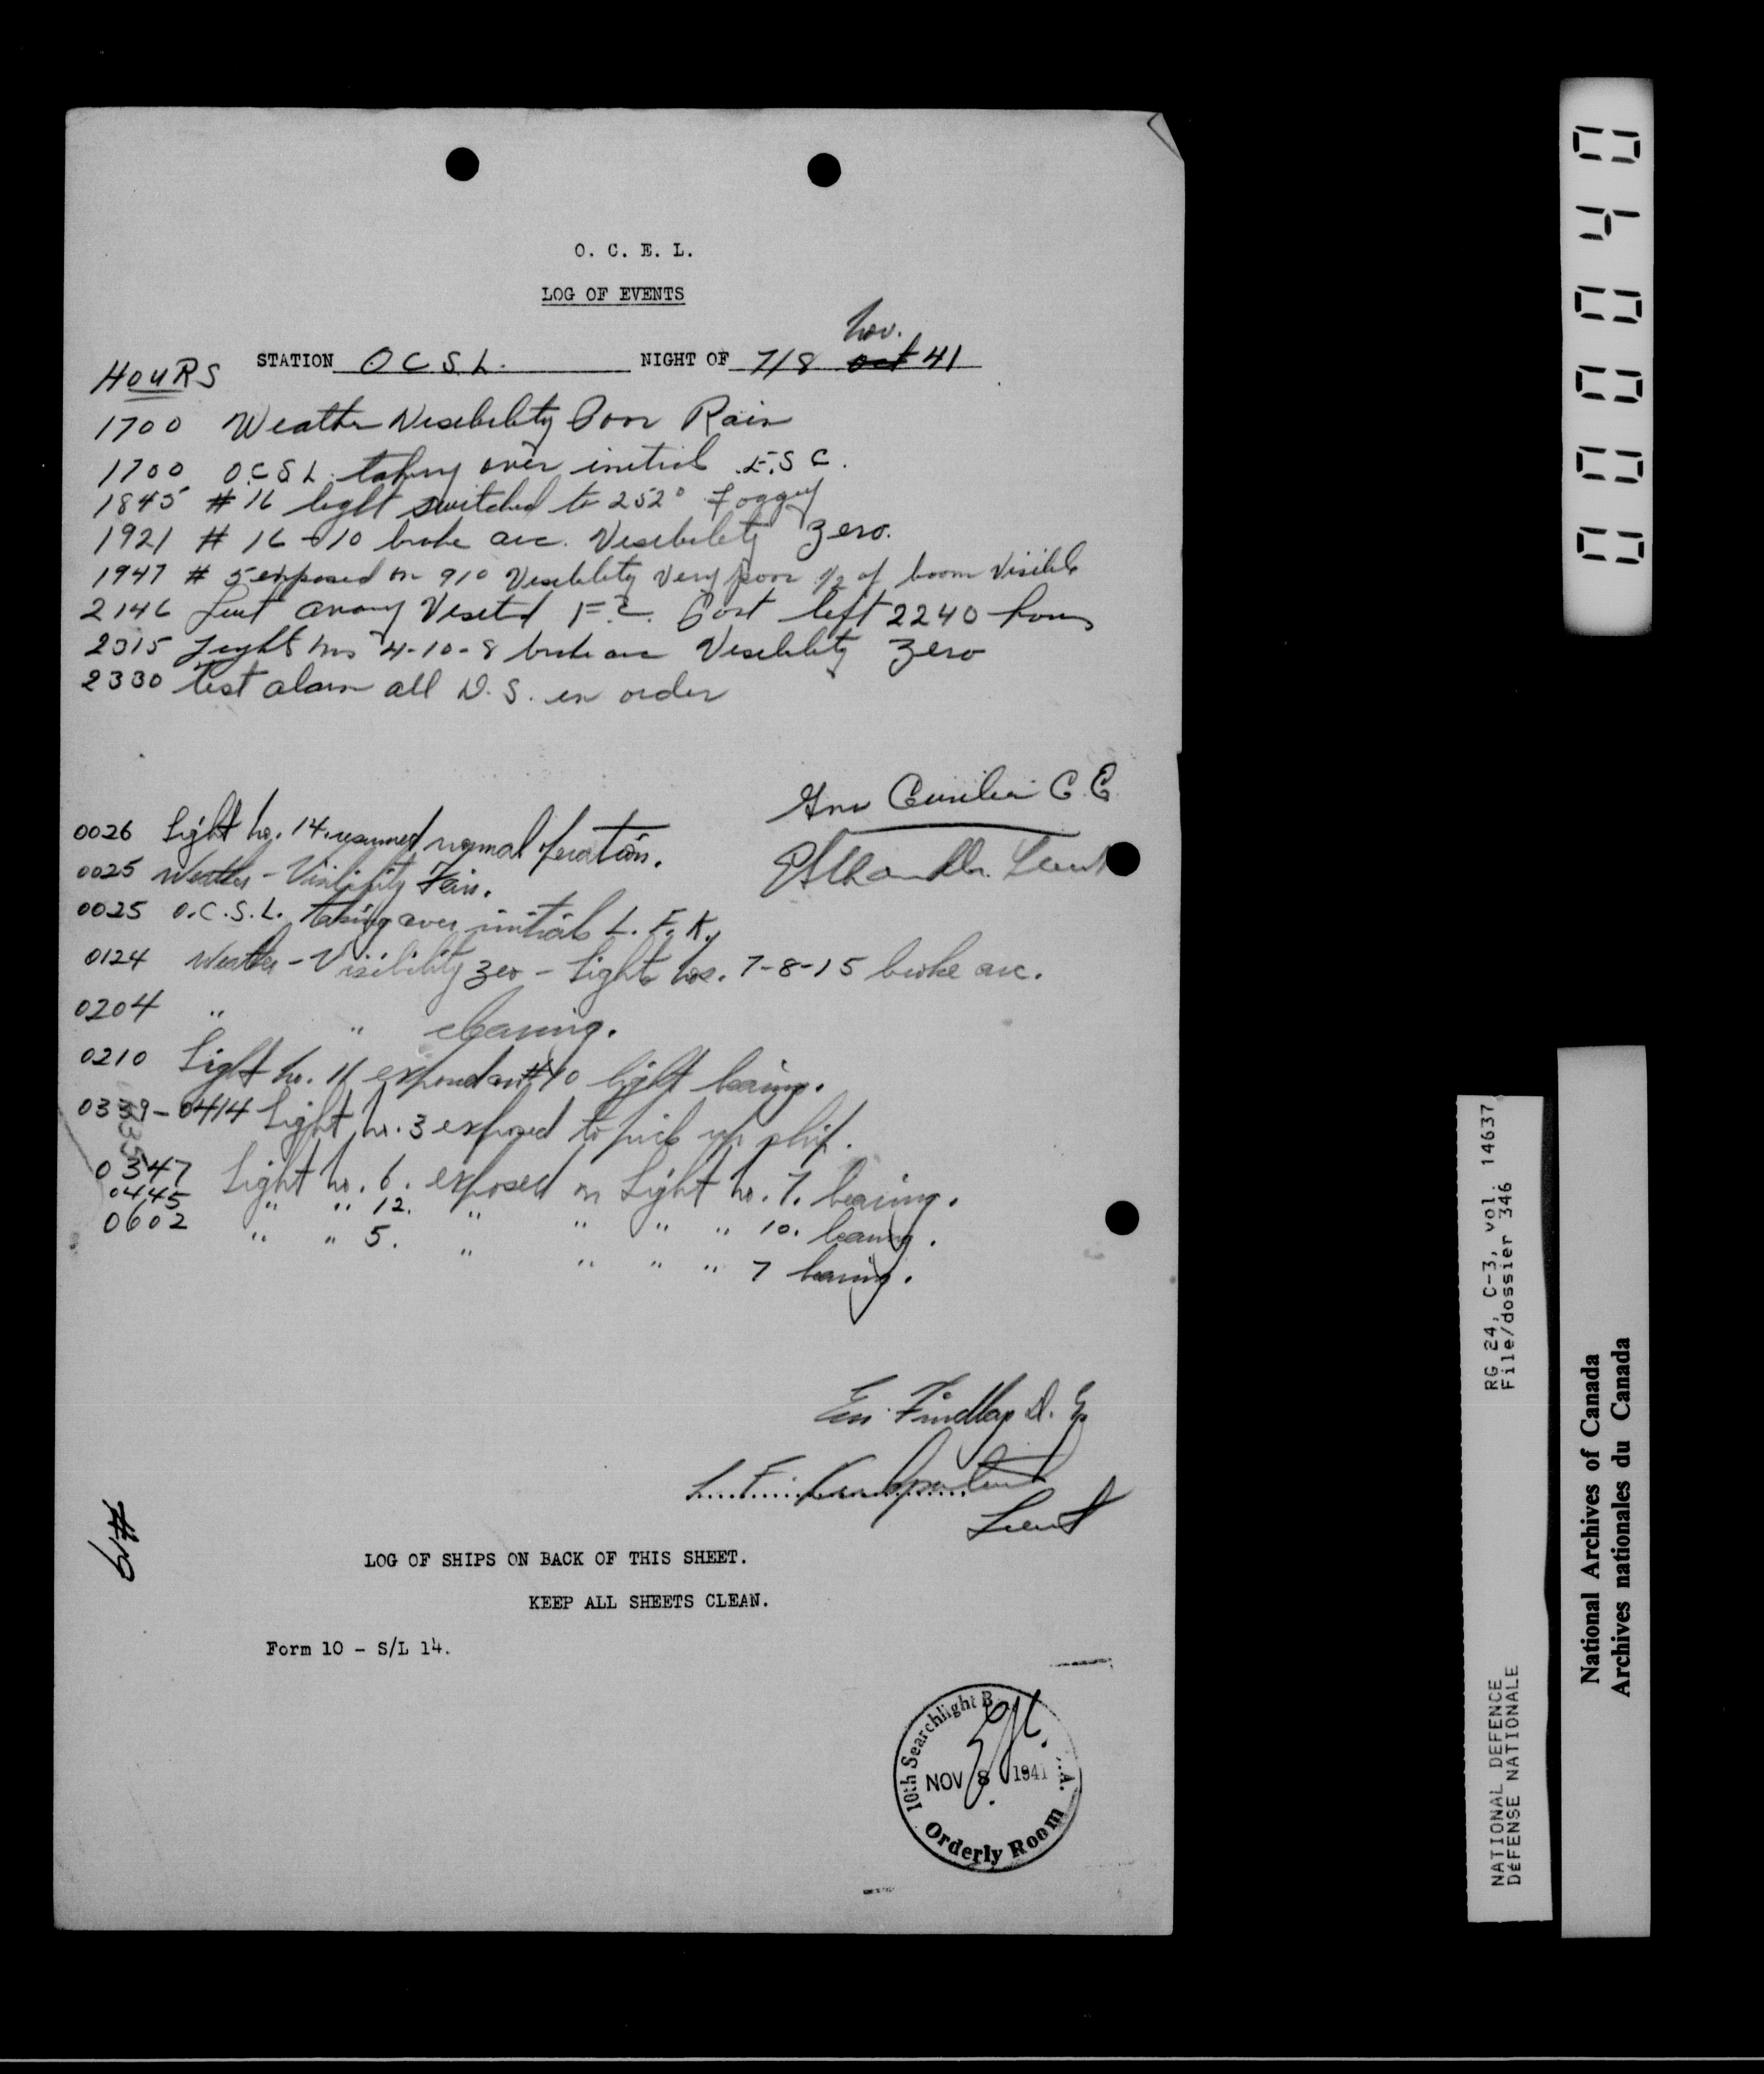 O. C. E. L.
LOG OF EVENTS
Nov.
STATION O.C.S.L. NIGHT OF 7/8 Oct 41
HOURS
1700 Weather Visebelity Poor Rain
1700 O.C.S.L. taking over initial E.S.C.
1845 # 16 light switched to 252° Foggy
1921 # 16 - 10 broke arc. Visebelety Zero.
1947 # 5 exposed on 910 Visebelity Very poor 1/2 of boom Visible
2146 Lieut Viseted F.C. Post left 2240 hours
2315 Light nos 4-10-8 broke arc Visebelety Zero
2330 test alarm all D.S. in order
Gnr C.E.
Lieut
0026 Light No. 14. resumed normal operation.
0025 Weather - Visibility Fair.
0025 O.C.S.L. taking over initials L.F.K.
0124 Weather - Visibility zero - Lights Nos. 7-8-15 broke arc.
0204 " " clearing.
0210 Light No. 11 exposed on #10 light bearing.
0339-0414 Light No. 3 exposed to pick up ship.
0347 Light No. 6. exposed on Light No. 7. bearing.
0445 " " 12. " " " " 10. bearing.
0602 " " 5. " " " " 7 bearing.
Findlay D. E.
L. F.
Lieut
#19
LOG OF SHIPS ON BACK OF THIS SHEET.
KEEP ALL SHEETS CLEAN.
Form 10 - S/L 14.
10th Searchlight B A.
NOV 8 1941
Orderly Room
000040
RG 24, C-3, vol. 14637
File/dossier 346
NATIONAL DEFENCE
DéFENSE NATIONALE
National Archives of Canada
Archives nationales du Canada